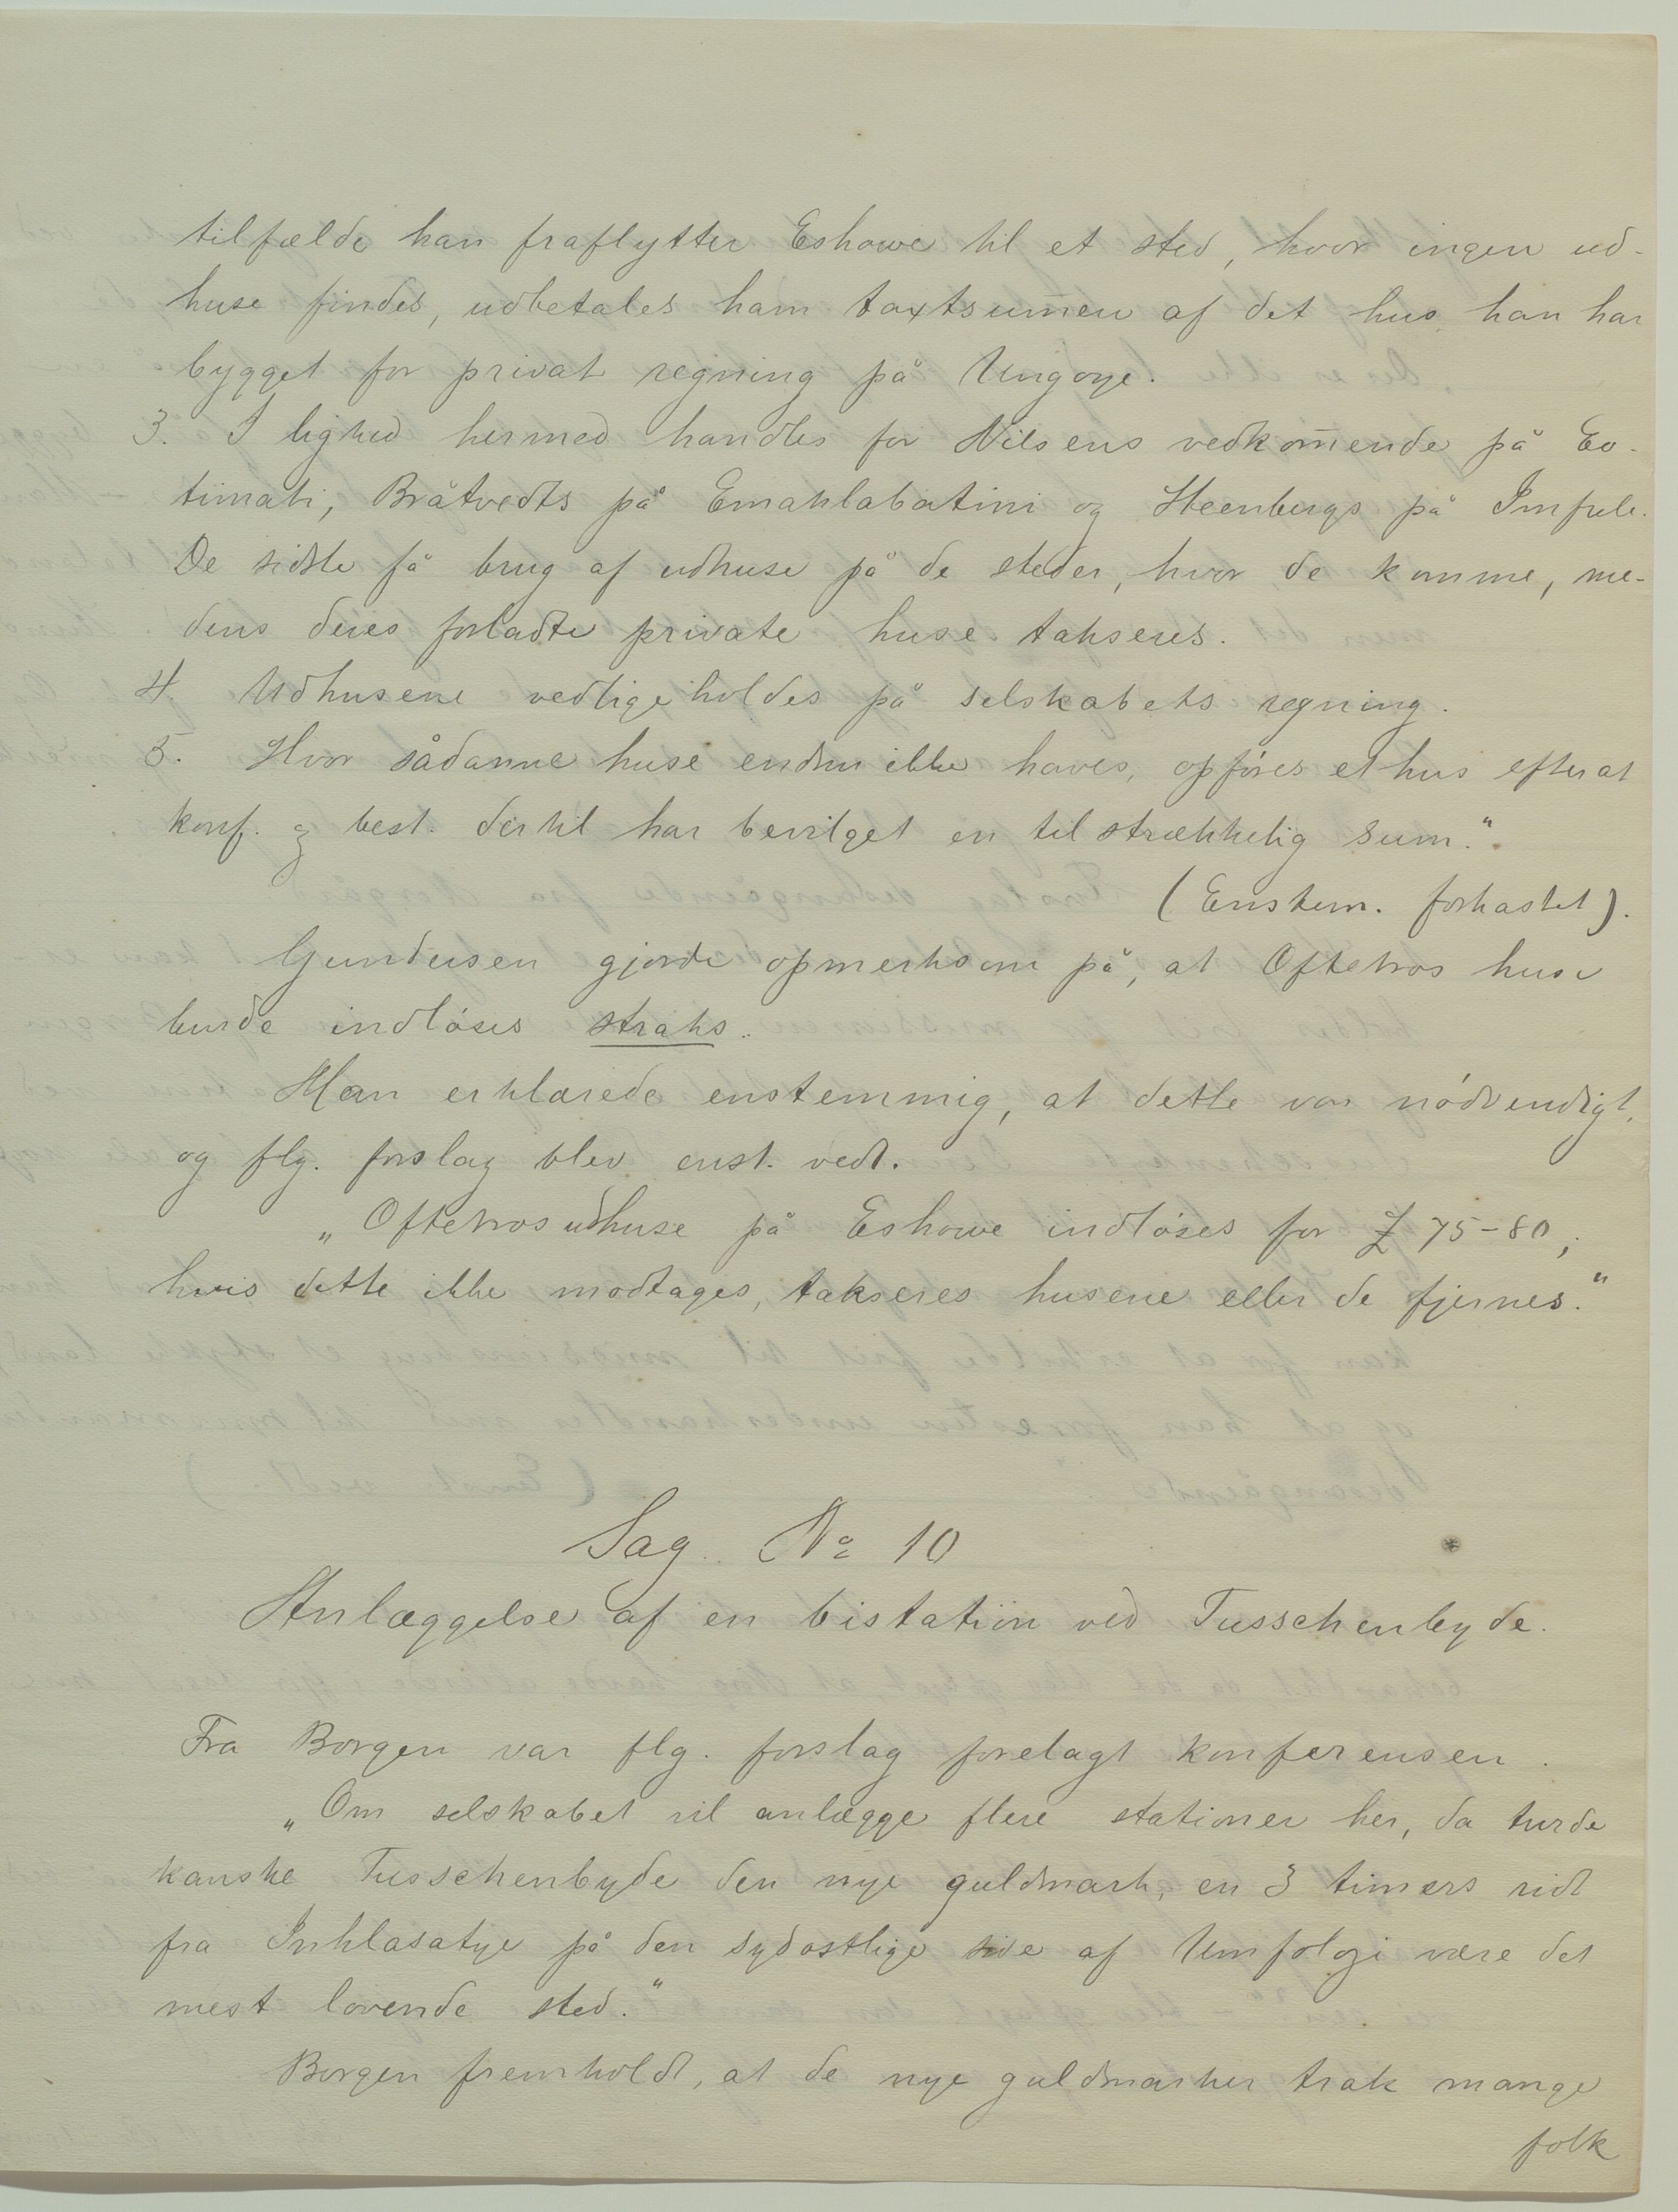 tilfælde han fraflytter Eshowe til et sted, hvor ingen ud-
huse findes, udbetales ham taxtsum̄en af det hus han har
bygget for privat regning på Ungoye.
3. I lighed hermed handles for Nilsens vedkom̄ende på Eo-
timati, Bråtvedts på Emahlabatini og Steenbergs på Imfule.
De sidste få brug af udhuse på de steder, hvor de komme, me-
dens deres forladte private huse takseres.
4. Udhusene vedligeholdes på selskabets regning.
5. Hvor sådanne huse endnu ikke haves, opføres et hus efter at
konf. og best. dertil har bevilget en tilstrækkelig sum."
(Enstem. forkastet).
Gundersen gjorde opmerksom på, at Oftebros huse
burde indløses straks.
Man erklærede enstemmig, at dette var nødvendigt,
og flg. forslag blev enst. vedt.
„Oftebros udhuse på Eshowe indløses for £ 75-80;
hvis dette ikke modtages, takseres husene eller de fjernes."
Sag No 10
Anlæggelse af en bistation ved Tusschenbyde.
Fra Borgen var flg. forslag forelagt konferensen.
„Om selskabet vil anlægge flere stationer her, da turde
kanske Tusschenbyde den nye guldmark, en 3 timers ridt
fra Inhlasatye på den sydostlige side af Umfolozi være det
mest lovende sted."
Borgen fremholdt, at de nye guldmarker trak mange
folk